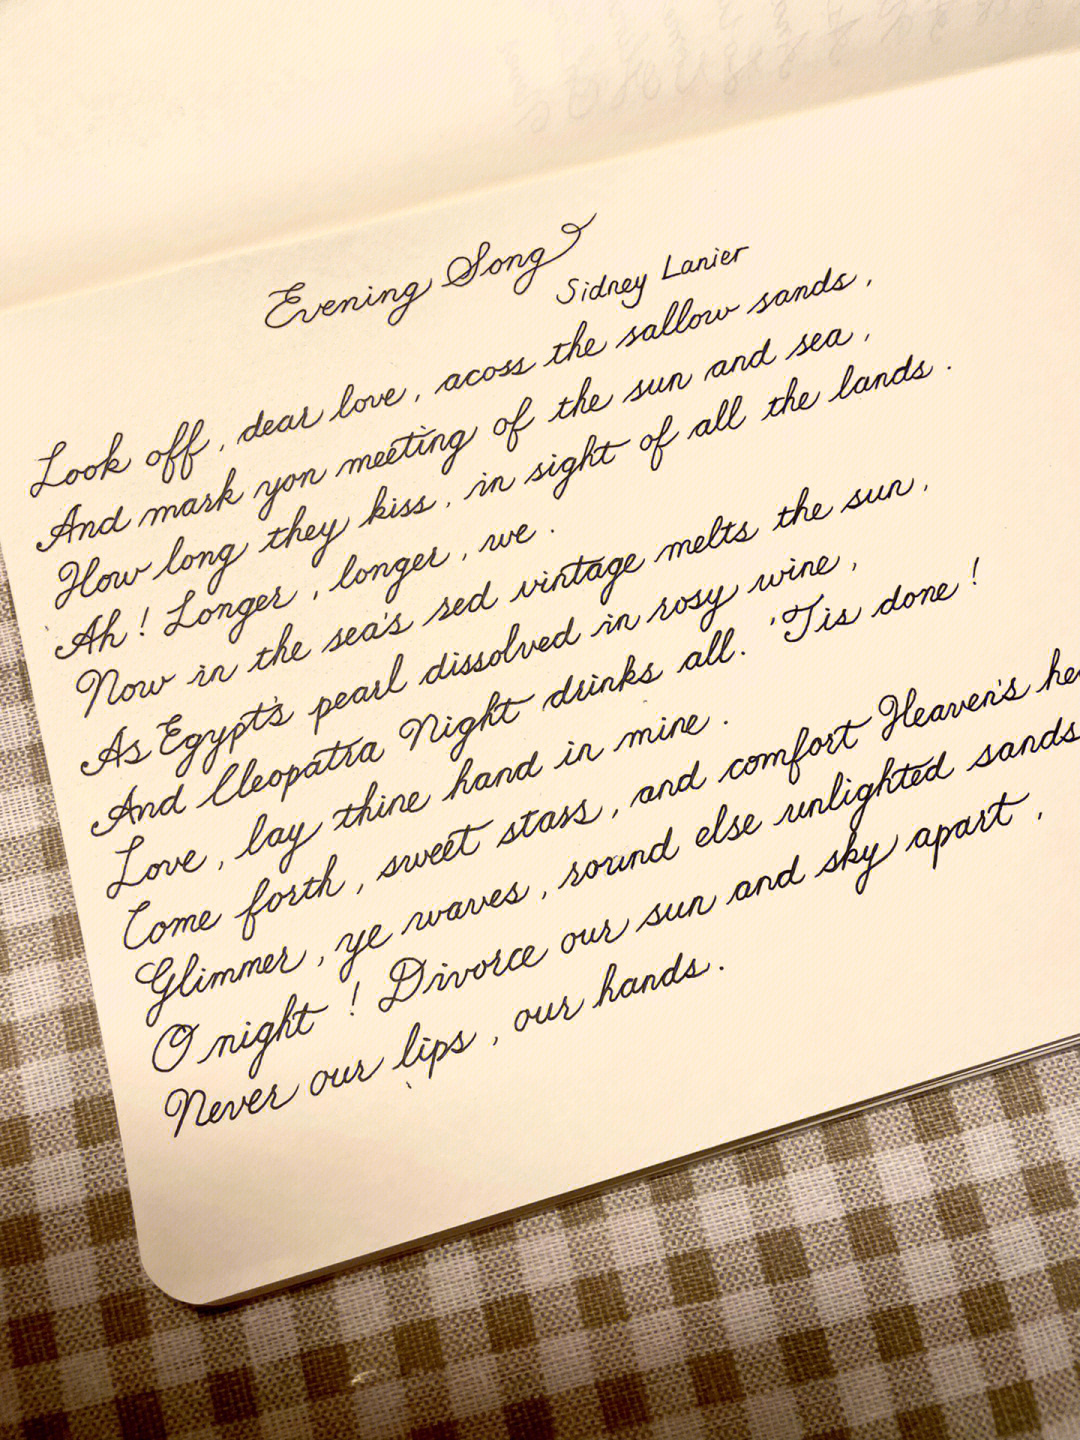 Evening Song
Sidney Lanier
Look off, dear love, acoss the sallow sands,
And mark yon meeting of the sun and sea,
How long they kiss, in sight of all the lands.
Ah! Longer, longer, we.
Now in the sea's red vintage melts the sun,
As Egypt's pearl dissolved in rosy wine,
And Cleopatra Night drinks all. 'Tis done!
Love, lay thine hand in mine.
Come forth, sweet stars, and comfort Heaven's
Glimmer, ye waves, round else unlighted sands
O night! Divorce our sun and sky apart,
Never our lips, our hands.